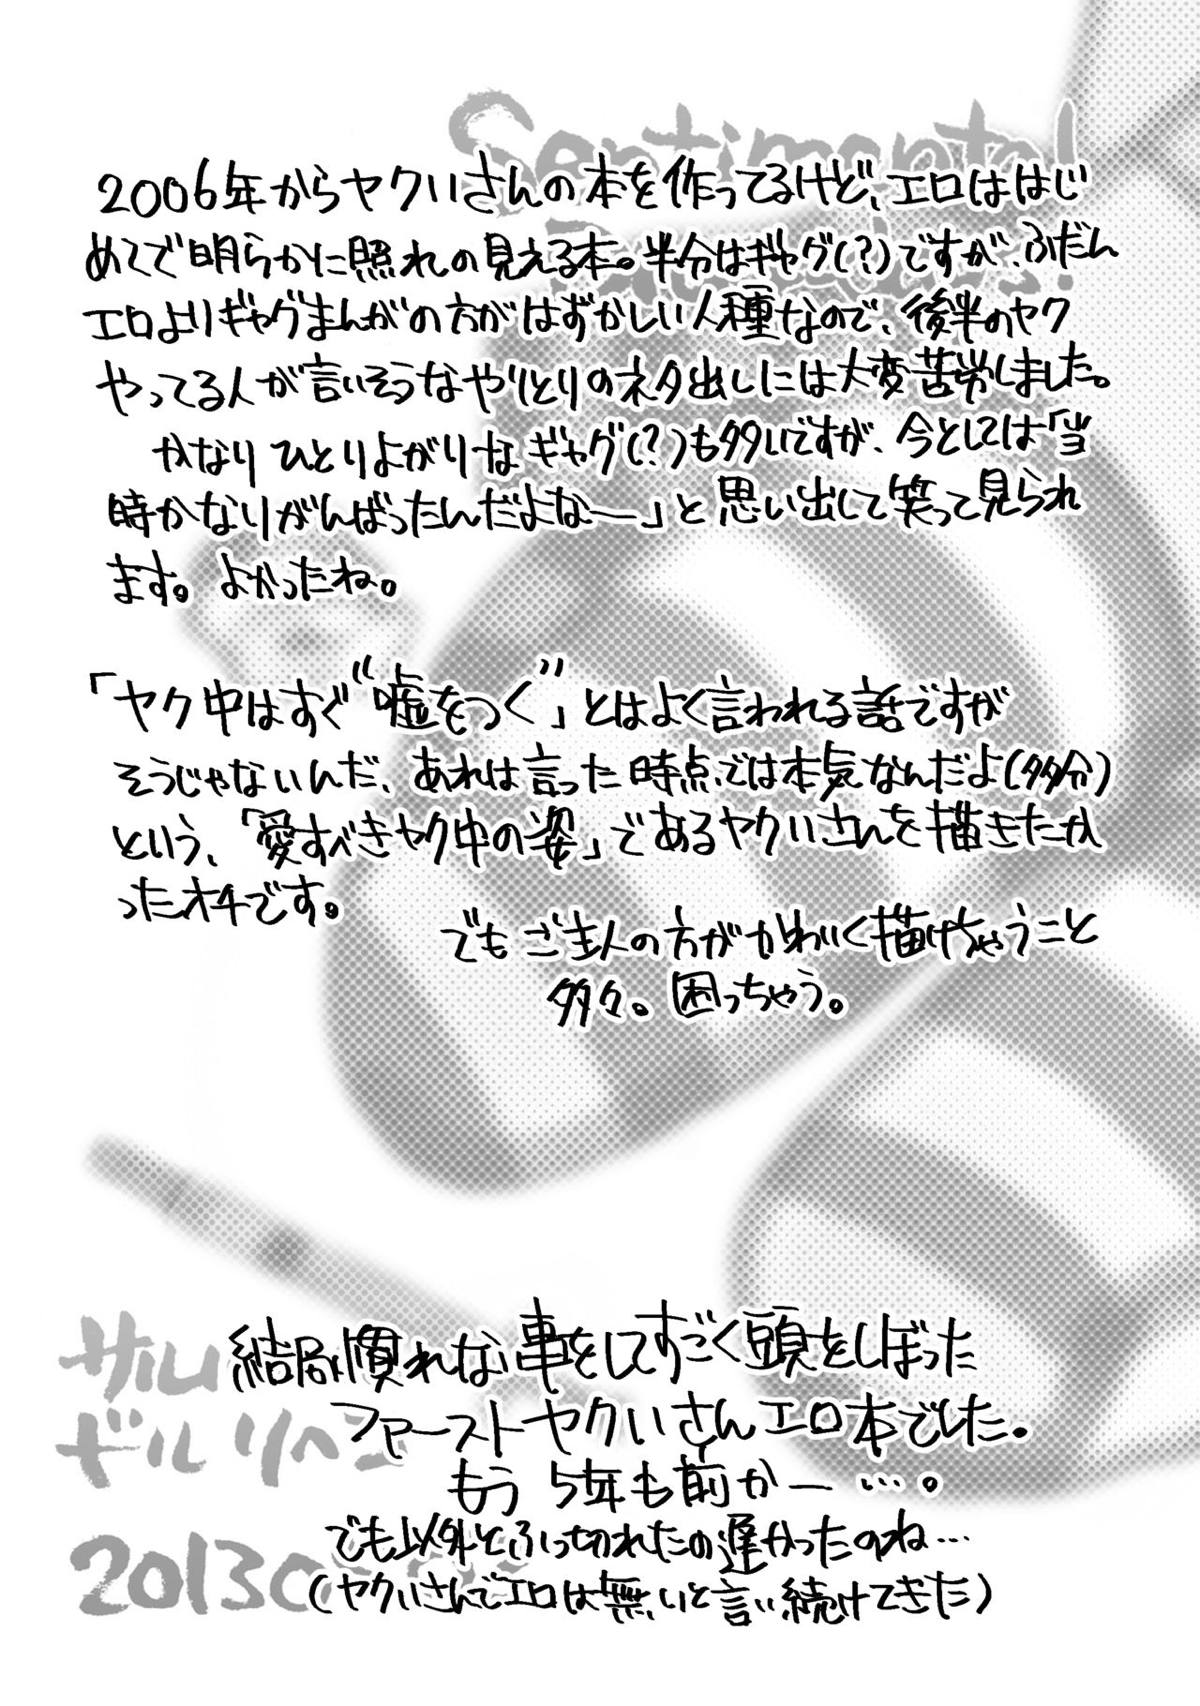 Sentimental
2006年からヤクいさんの本を作ってるけど、エロははじ
めてで明らかに照れの見える本。半分はギャグ(?)ですが、ふだん
エロよりギャグまんがの方がはずかしい人種なので、後半のヤク
やってる人が言いそうなやりとりのネタ出しには大変苦労しました。
かなりひとりよがりなギャグ(?)も多いですが、今としては「当
時かなりがんばったんだよなー」と思い出して笑って見られ
ます。よかったね。
「ヤク中はすぐ“嘘をつく”」とはよく言われる話ですが
そうじゃないんだ、あれは言った時点では本気なんだよ(多分)
という、「愛すべきヤク中の姿」であるヤクいさんを描きたか
ったオチです。
でもご主人の方がかわいく描けちゃうこと
多々。困っちゃう。
サルド
ギルリヘ
2013
結局慣れない事をしてすごく頭をしぼった
ファーストヤクいさんエロ本でした。
もう5年も前かー…。
でも以外とふっ切れたの遅かったのね…
(ヤクいさんでエロは無いと言い続けてきた)